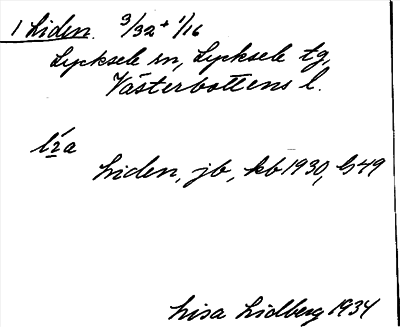 1 Liden. 3/32 + 1/16
Lycksele sn, Lycksele tg,
Västerbottens l.
Liden, jb, kb 1930, G 49
Lisa Lidberg 1934